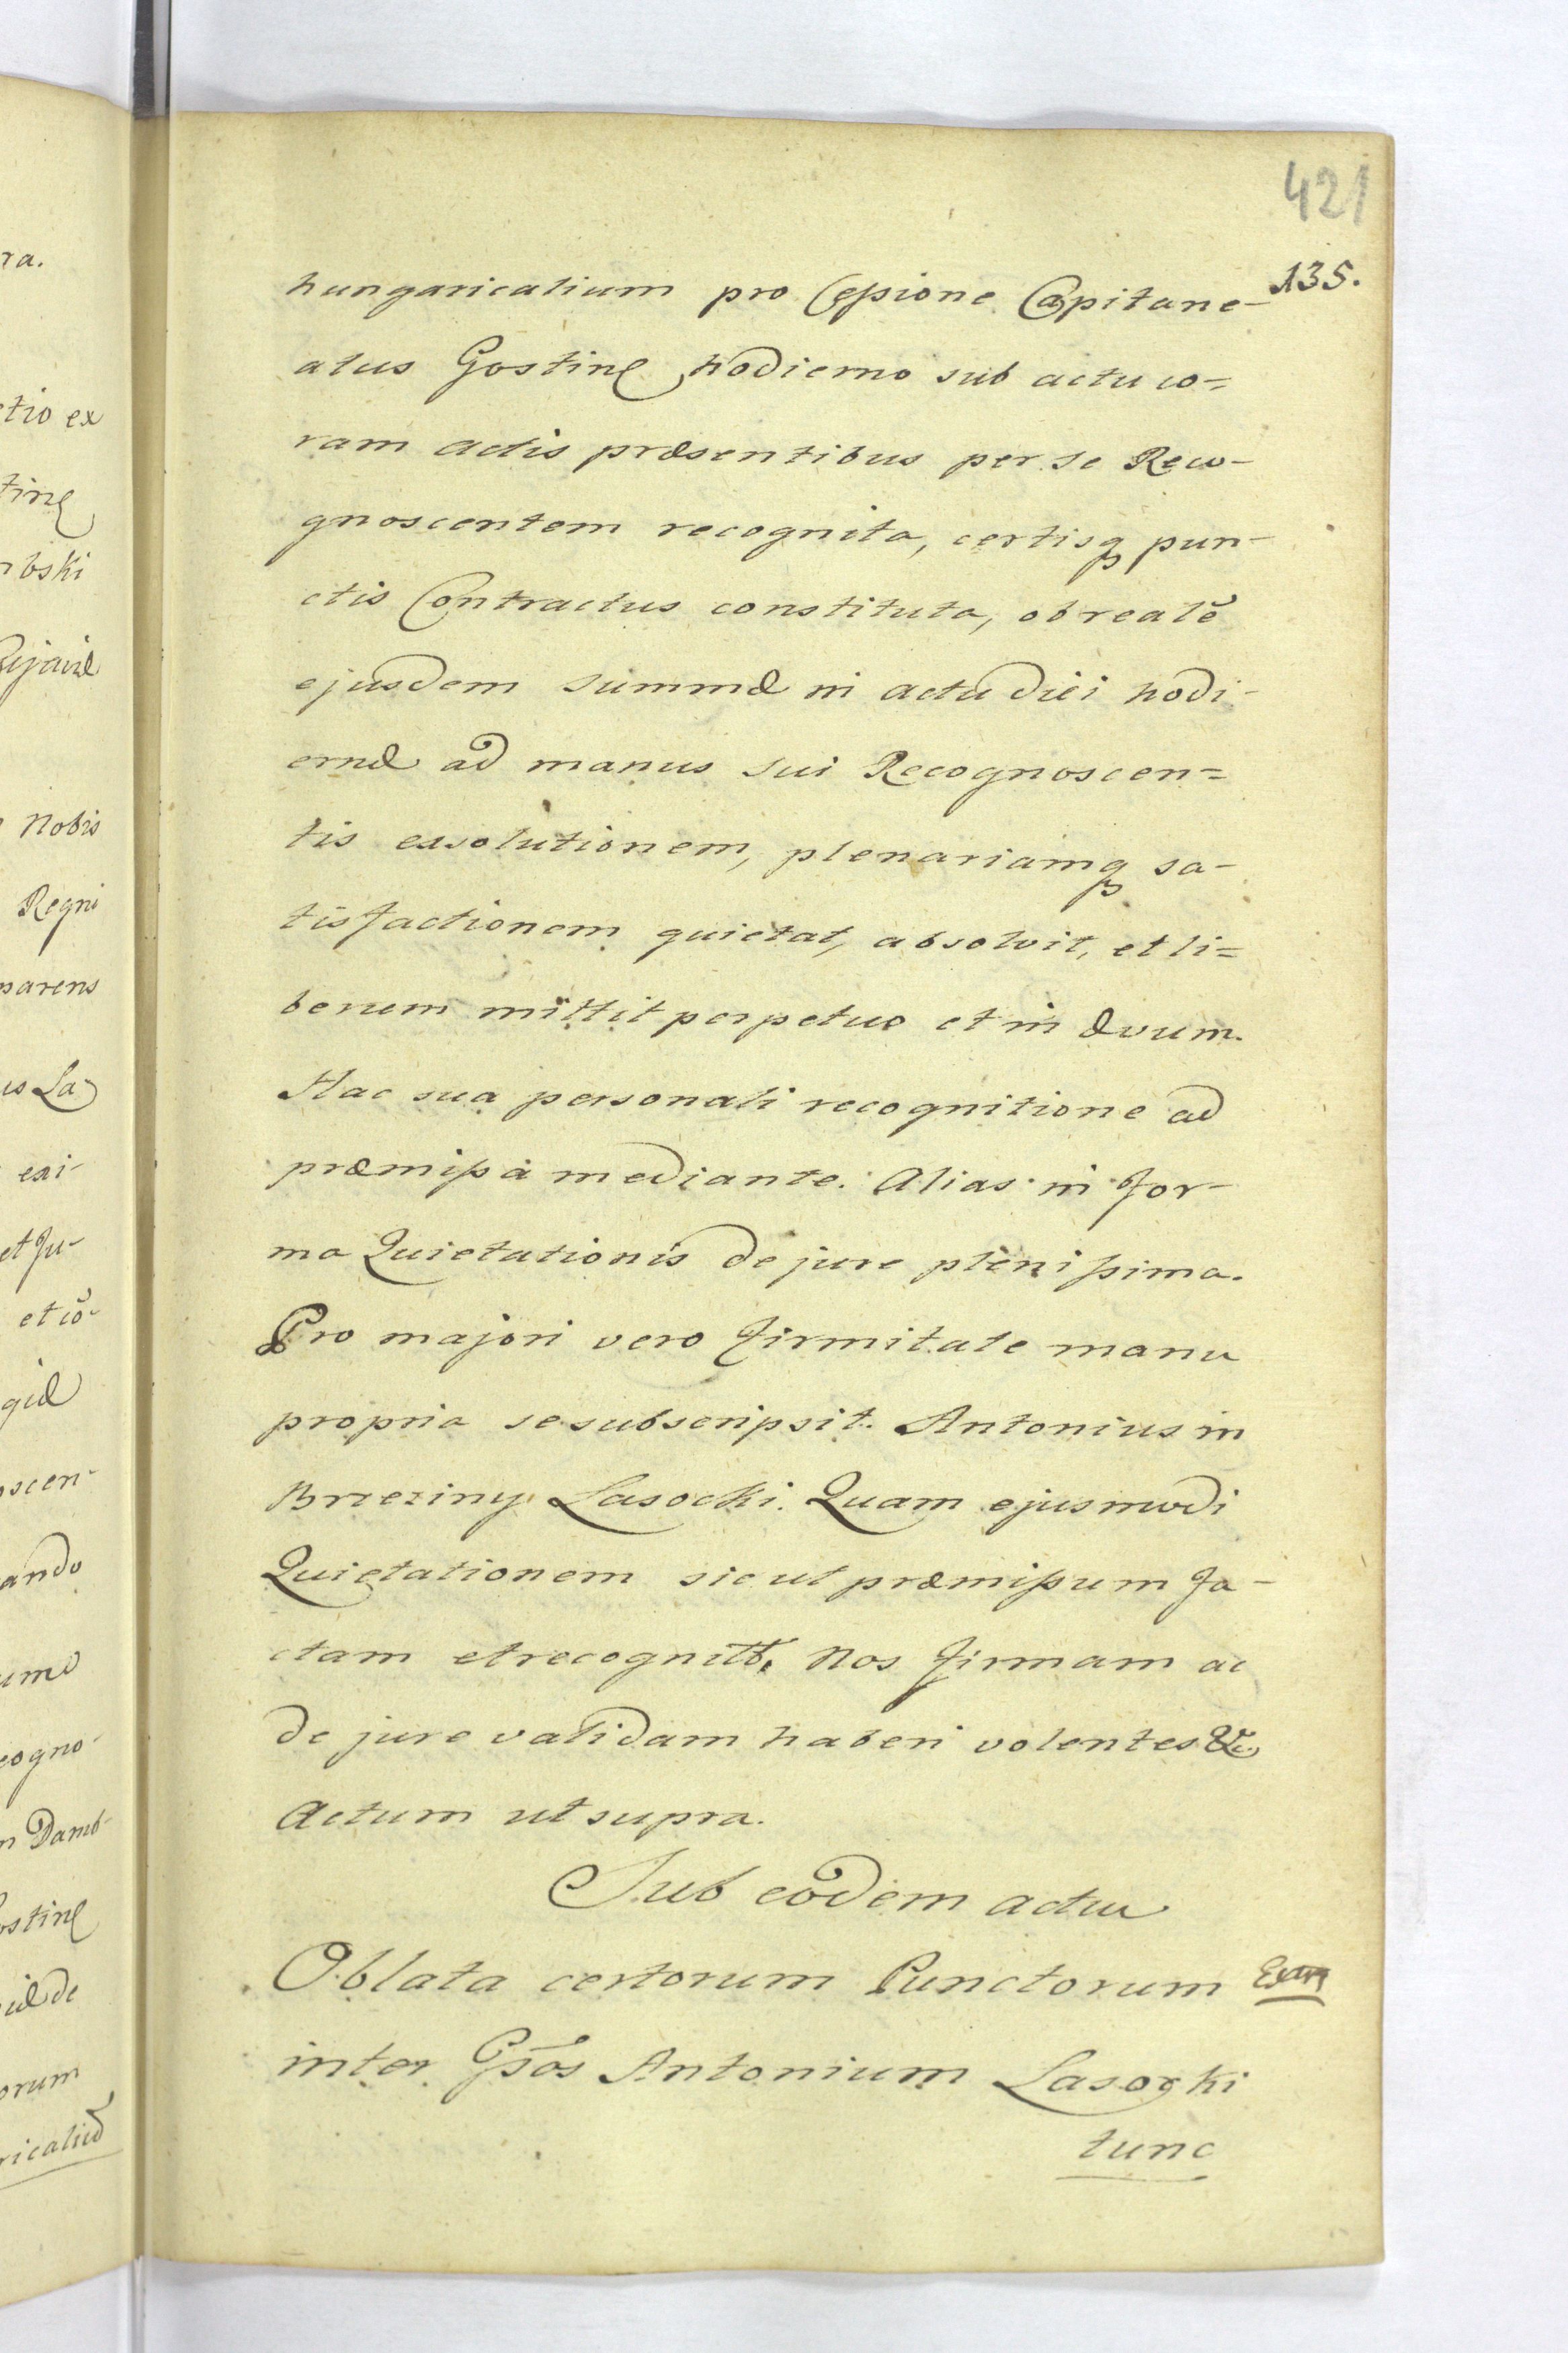 421
135.
hungaricalium pro Cessione Capitane-
atus Gostinen hodierno sub actu co=
ram actis præsentibus per se Reco-
gnoscentem recognita, certisq3 pun-
ctis Contractus constituta, ob realẽ
ejusdem summæ in actu diei hodi-
ernæ ad manus sui Recognoscen=
tis exsolutionem, plenariamq3 sa-
tisfactionem quietat, absolvit, et li=
berum mittit perpetuo et in ævum.
Hac sua personali recognitione ad
præmissa mediante. Alias in for-
ma Quietationis de jure plenissima.
Pro majori vero firmitate manu
propria se subscripsit. Antonius in
Brzeziny Lasocki. Quam ejusmodi
Quietationem sicut præmissum fa-
ctam et recognitã. Nos firmam ac
de jure validam haberi volentes &c.
Actum ut supra.
Sub eodem actu
Oblata certorum Punctorum
inter Gsõs Antonium Lasocki
tunc
ra.
tio ex
tinen
bski
ujaviæ
Nobis
Regni
parens
us La
exi-
et Ju-
et cõ-
giæ
scen-
ando
umo
cogno-
m Damb-
ostinen
iæ de
orum
ricaliũ